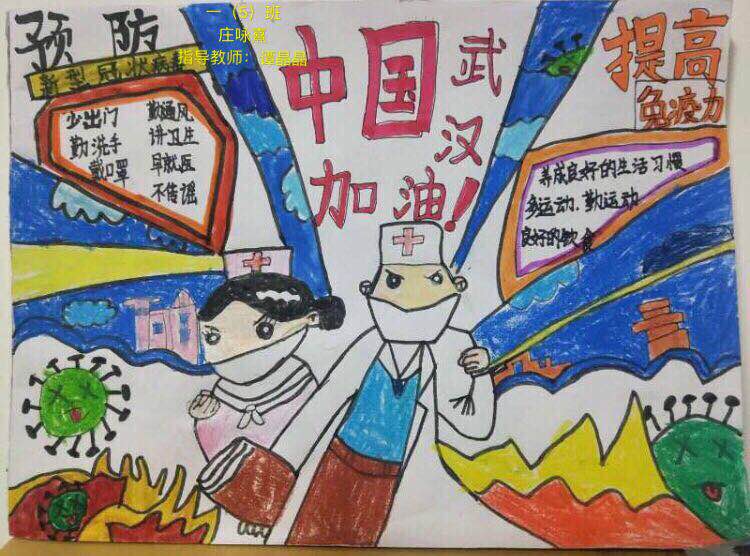 一（5）班
庄咏熹
指导教师：谭晶晶
预防
新型冠状病
少出门
勤洗手
戴口罩
勤通风
讲卫生
早就医
不传谣
中国
加油!
武汉
提高
免疫力
养成良好的生活习惯
多运动.勤运动
良好的饮食